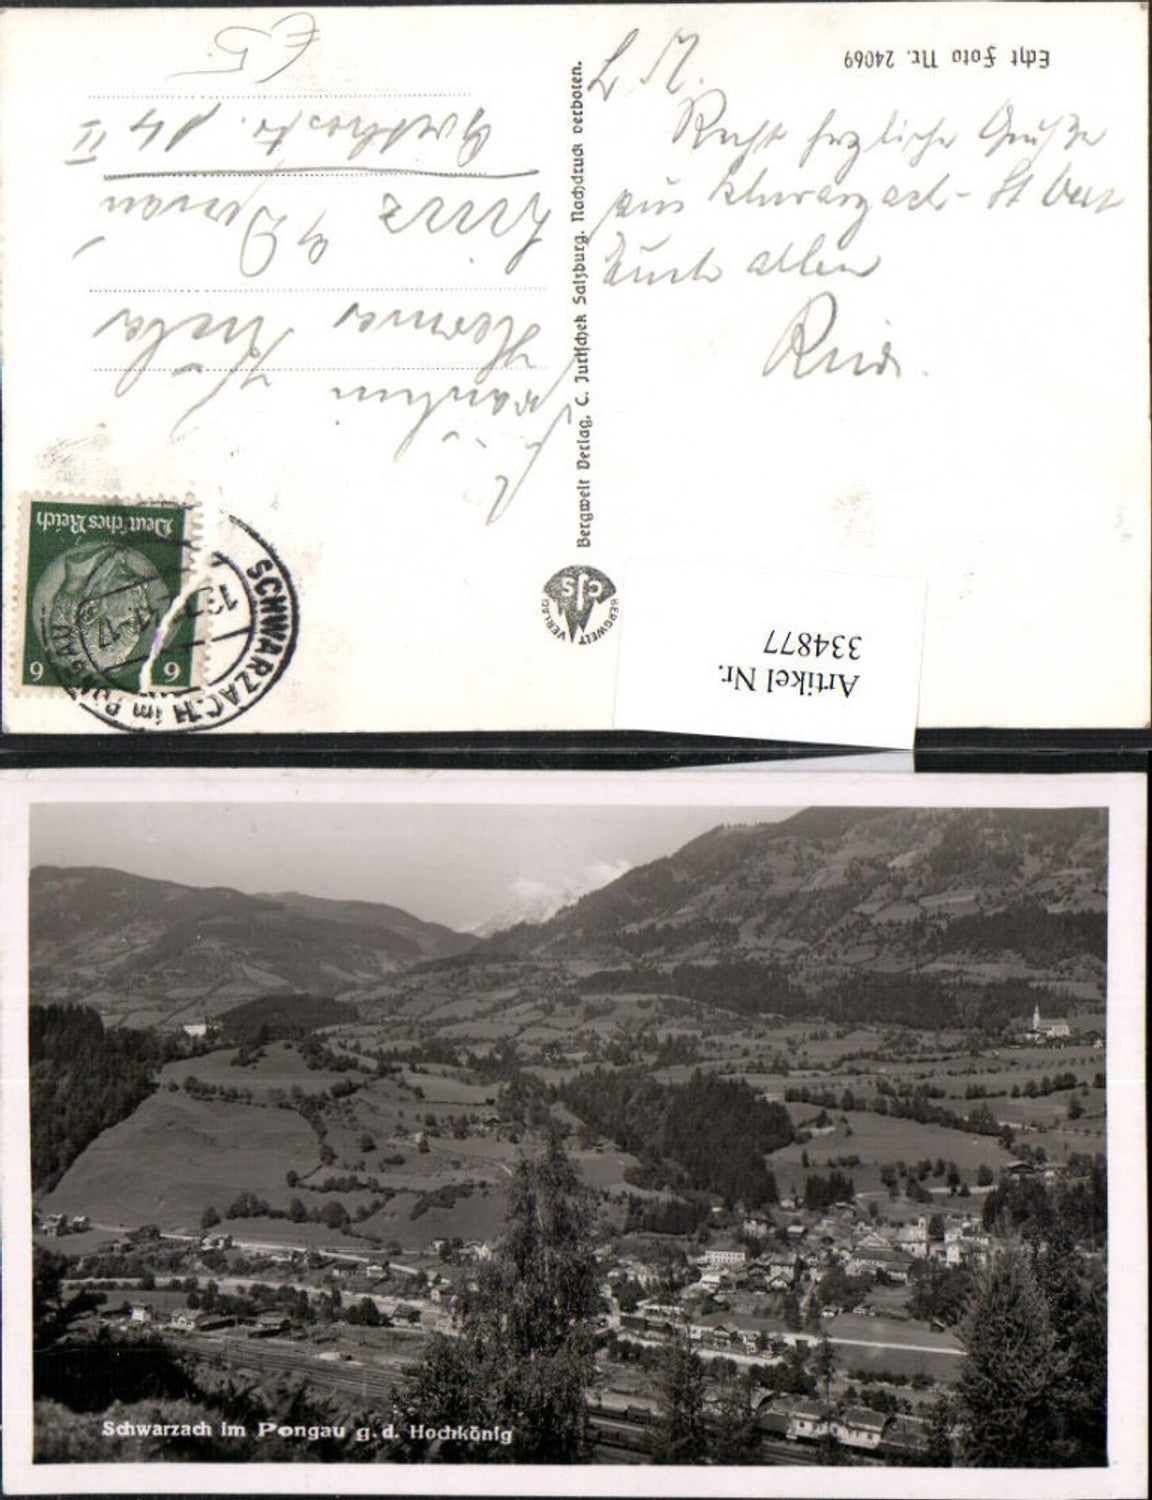 Echt Foto Nr. 24069
L. M.
Recht herzliche Grüße
aus Schwarzach - St Veit
Euch allen
Bergwelt Verlag, C. Jurischek Salzburg. Nachdruck verboten.
BERGWELT VERLAG
CJS
Fräulein
Linz a/Donau
€5
Deutsches Reich
6 6
SCHWARZACH im PONGAU
Artikel Nr.
334877
Schwarzach im Pongau g. d. Hochkönig